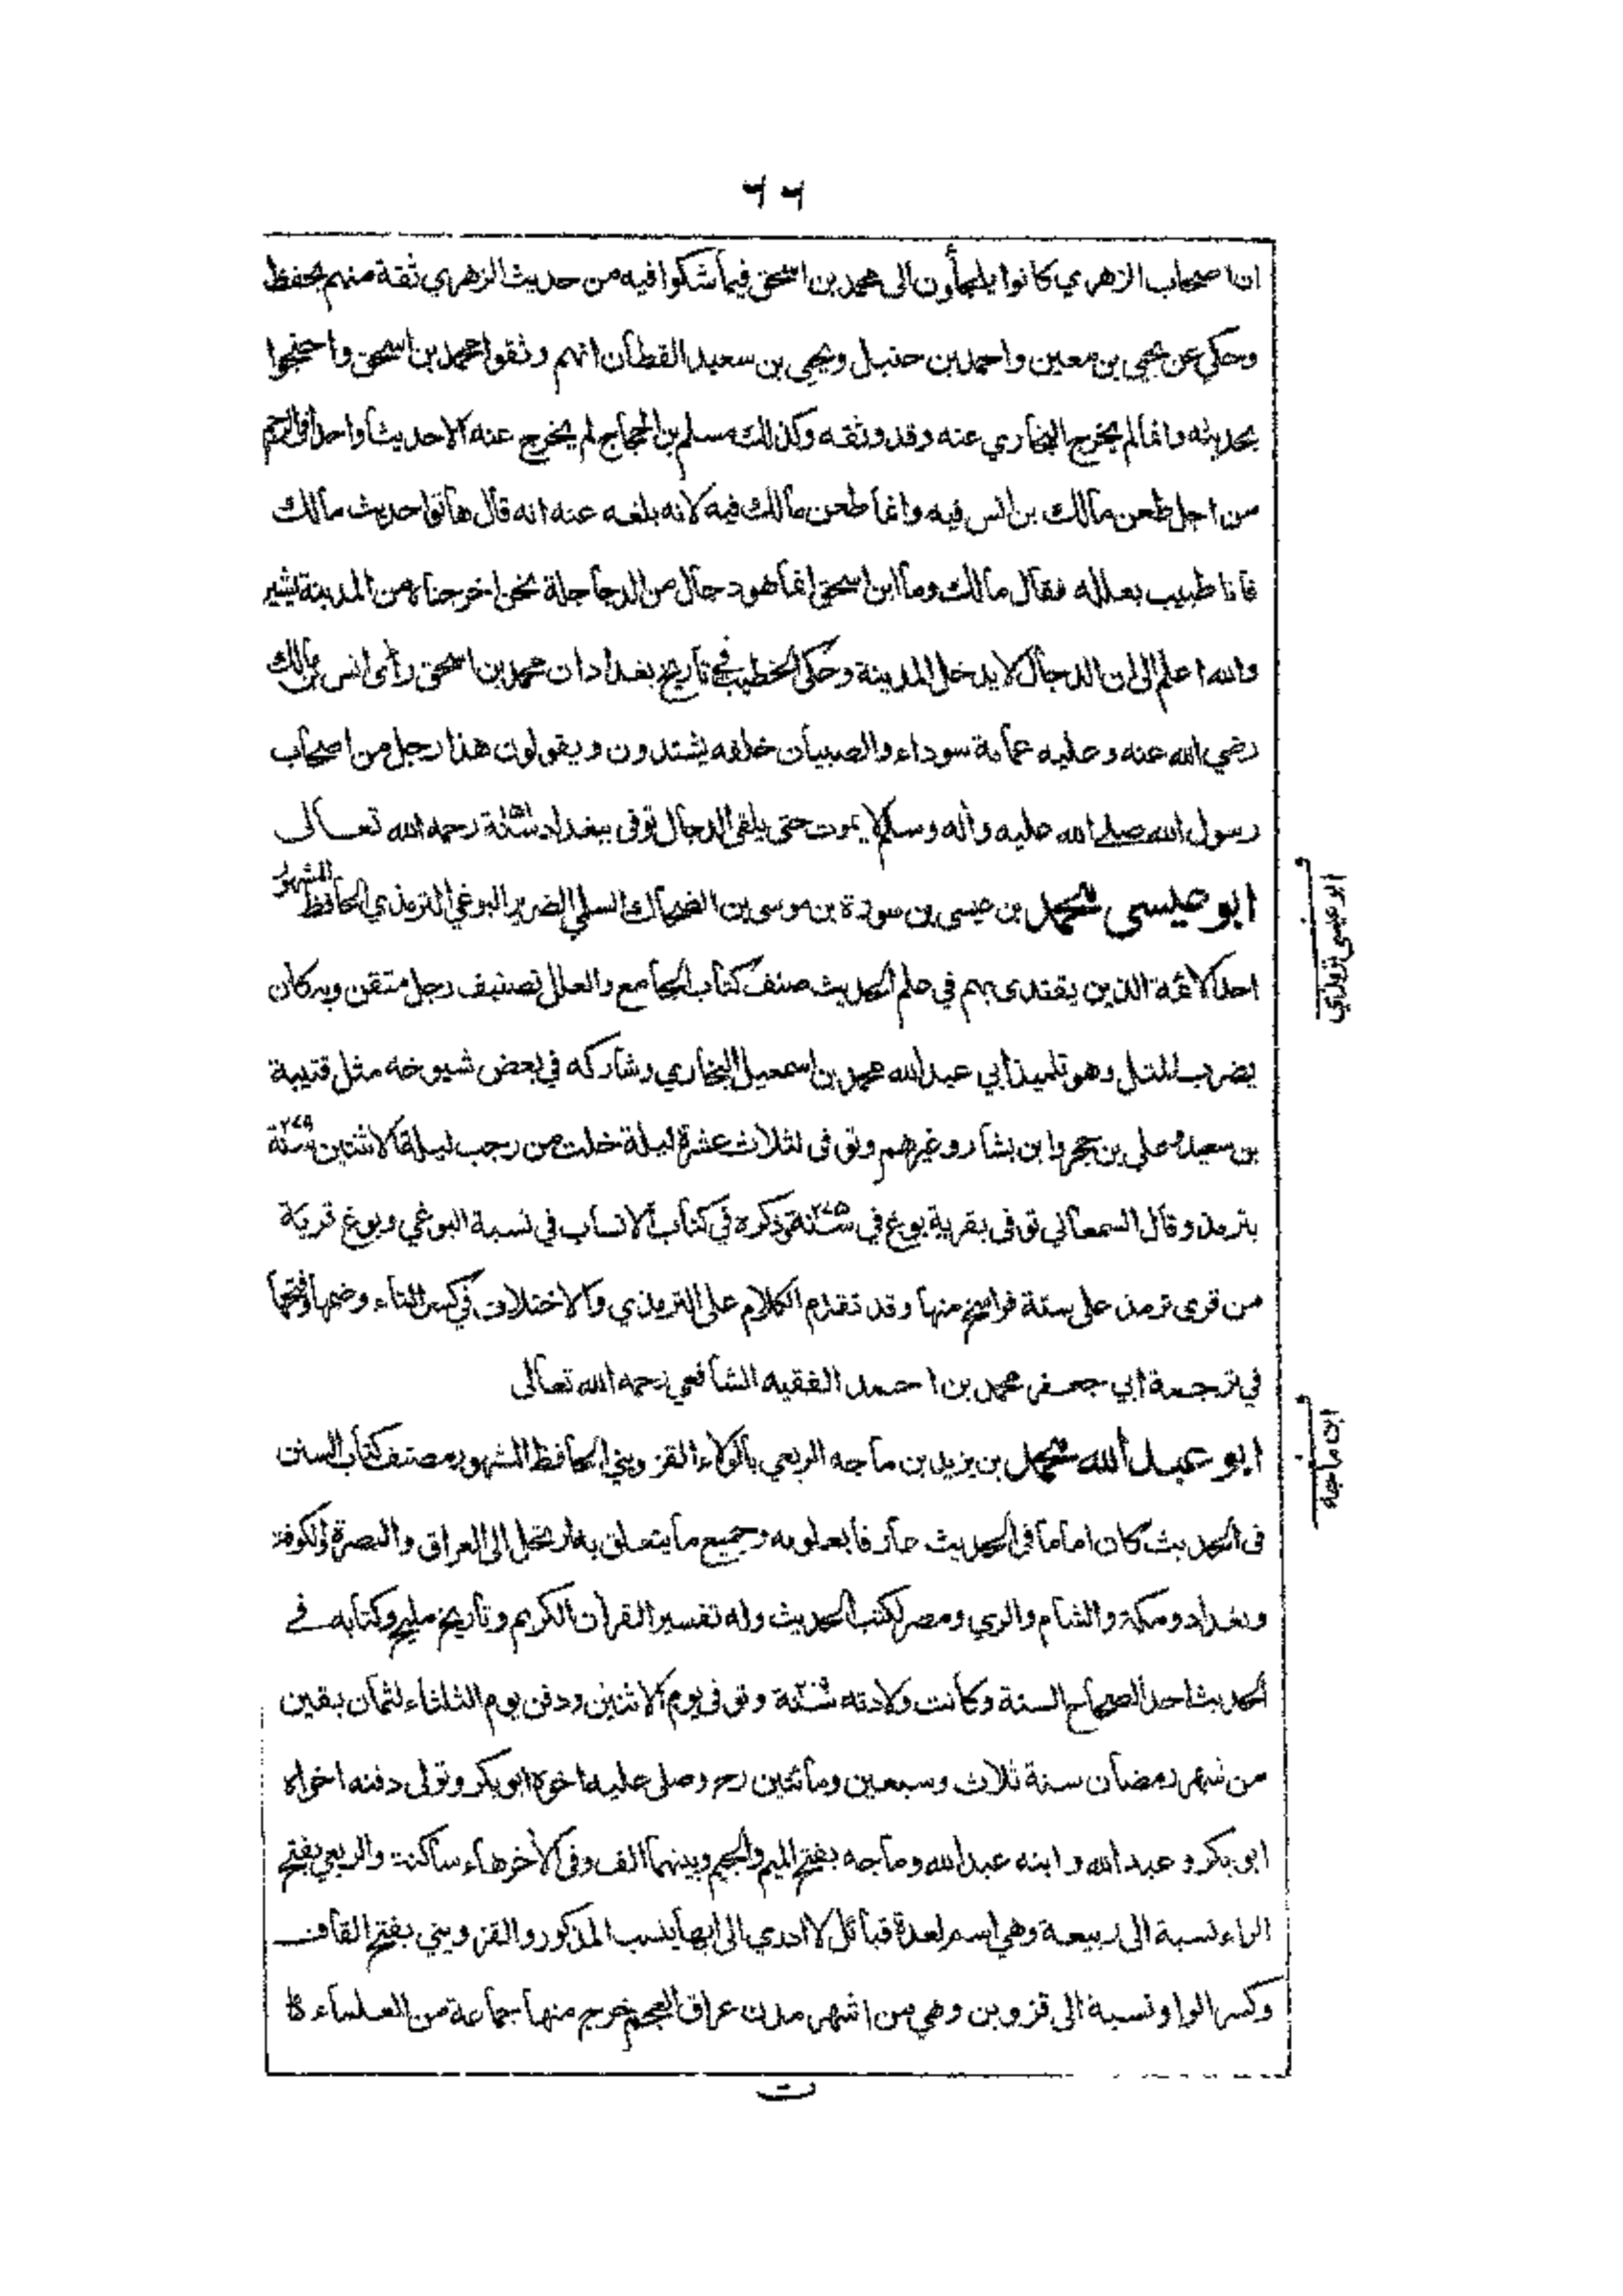 ٦٦
ان اصحاب الزهري كانوا يلجأون الى محمد بن اسحق فيما شكوا فيه من حديث الزهري ثقة منهم بحفظه
وحكي عن يحيى بن معين واحمد بن حنبل ويحيى بن سعيد القطان انهم وثقوا محمد بن اسحق واحتجوا
بحديثه وانما لم يخرج البخاري عنه وقد وثقه وكذلك مسلم بن الحجاج لم يخرج عنه الا حديثا واحدا في الرجم
من اجل طعن مالك بن انس فيه وانما طعن مالك فيه لانه بلغه عنه انه قال هاتوا حديث مالك
فانا طبيب بعلله فقال مالك وما ابن اسحق انما هو دجال من الدجاجلة نحن اخرجناه من المدينة يشير
والله اعلم الى ان الدجال لا يدخل المدينة وحكى الخطيب في تاريخ بغداد ان محمد بن اسحق رأى انس بن مالك
رضي الله عنه وعليه عمامة سوداء والصبيان خلفه يشتدون ويقولون هذا رجل من اصحاب
رسول الله صلى الله عليه وأله وسلم لا يموت حتى يلقى الدجال توفي ببغداد رحمه الله تعالى
ابو عيسى محمد بن عيسى بن سورة بن موسى بن الضحاك السلمي الضرير البوغي الترمذي الحافظ المشهور
ابو عيسى ترمذي
احد الائمة الذين يقتدى بهم في علم الحديث صنف كتاب الجامع والعلل تصنيف رجل متقن وبه كان
يضرب المثل وهو تلميذ ابي عبد الله محمد بن اسمعيل البخاري وشاركه في بعض شيوخه مثل قتيبة
بن سعيد وعلي بن حجر وابن بشار وغيرهم وتوفي لثلاث عشرة ليلة خلت من رجب ليلة الاثنين سنة ٢٧٩
بترمذ وقال السمعاني توفي بقرية بوغ في سنة ٢٧٥ وذكره في كتاب الانساب في نسبة البوغي وبوغ قرية
من قرى ترمذ على ستة فراسخ منها وقد تقدم الكلام على الترمذي والاختلاف في كسر التاء وضمها وفتحها
في ترجمة ابي جعفر محمد بن احمد الفقيه الشافعي رحمه الله تعالى
ابو عبد الله محمد بن يزيد بن ماجه الربعي بالولاء القزويني الحافظ المشهور مصنف كتاب السنن
ابن ماجه
في الحديث كان اماما في الحديث عارفا بعلومه وجميع ما يتعلق به ارتحل الى العراق والبصرة والكوفة
وبغداد ومكة والشام والري ومصر لكتب الحديث وله تفسير القران الكريم وتاريخ مليح وكتابه في
الحديث احد الصحاح الستة وكانت ولادته وتوفي يوم الاثنين ودفن يوم الثلثاء لثمان بقين
من شهر رمضان سنة ثلاث وسبعين ومائتين رح وصلى عليه اخوه ابو بكر وتولى دفنه اخواه
ابي بكر وعبد الله وابنه عبد الله وماجه بفتح الميم والجيم وبينهما الف وفي الأخر هاء ساكنة والربعي بفتح
الراء نسبة الى ربيعة وهي اسم لعدة قبائل لا ادري الى ايها ينسب المذكور والقزويني بفتح القاف
وكسر الواو نسبة الى قزوين وهي من اشهر مدن عراق العجم خرج منها جماعة من العلماء
ت